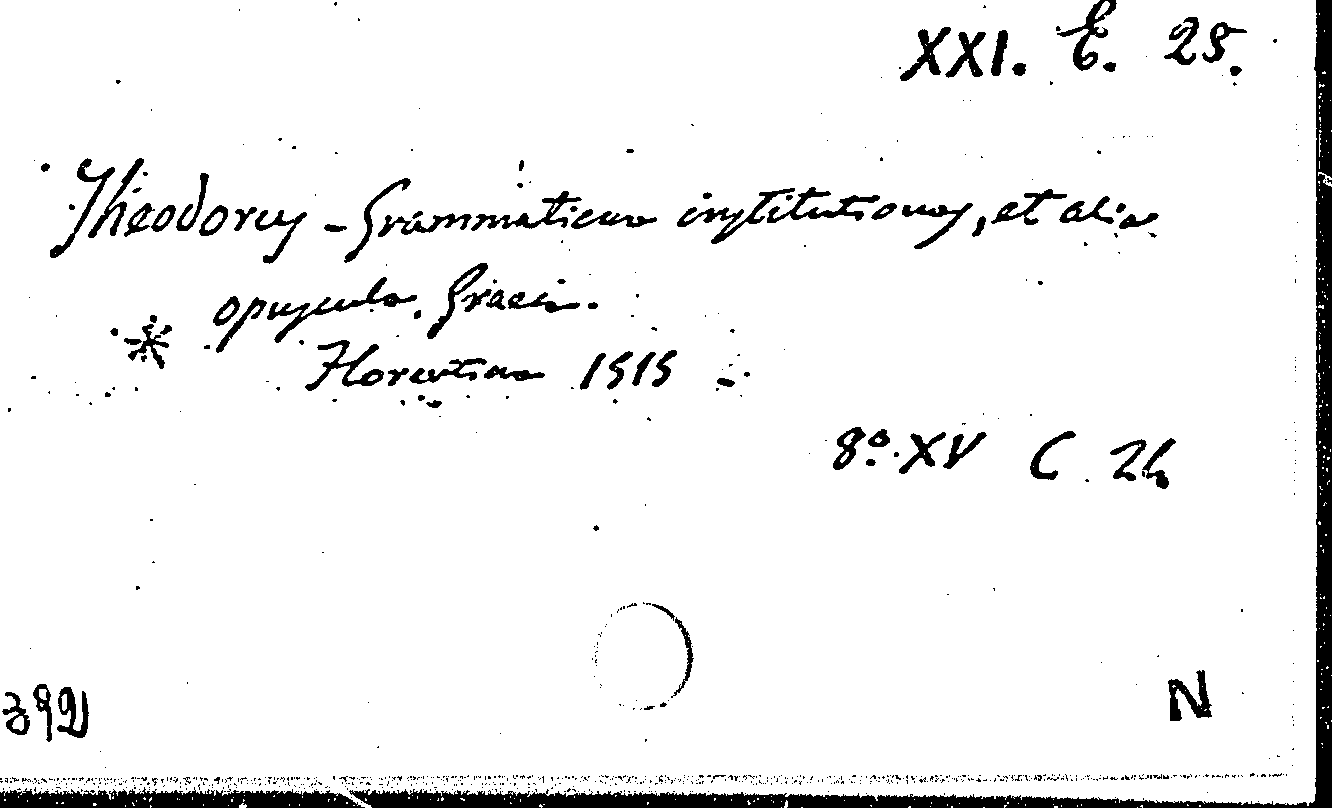 XXI. E. 25.
Theodorus - Grammaticae institutiones, et alia
opuscula. Graece.
Florentiae 1515 -
8º. XV C. 24
N